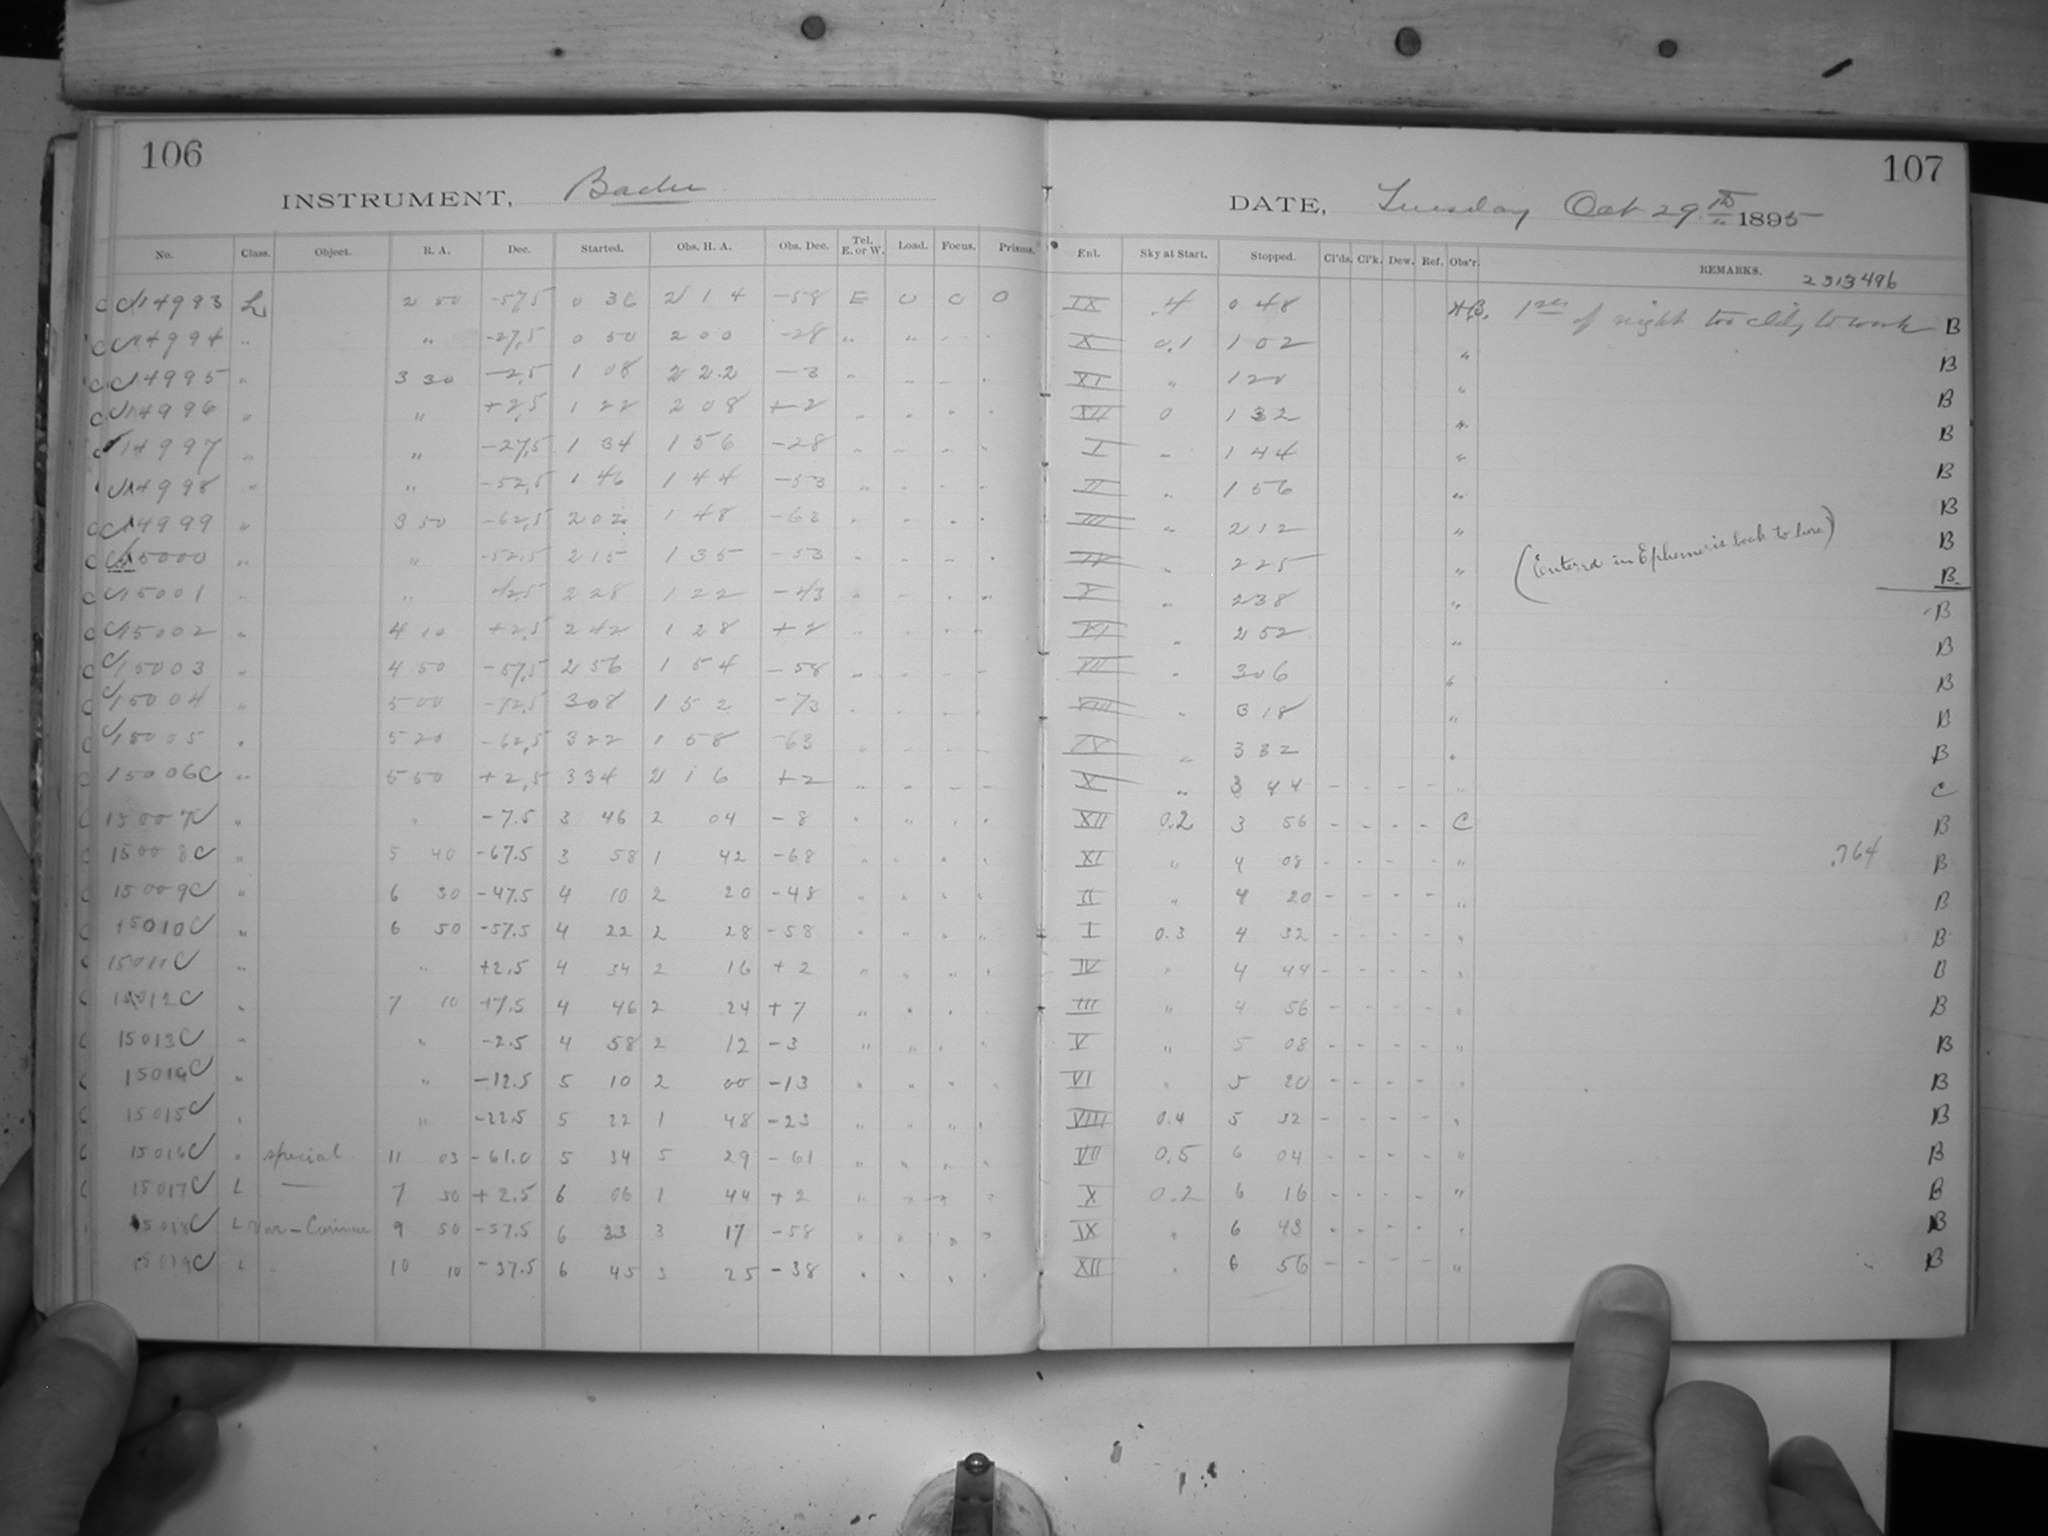 106
INSTRUMENT, Bache
No. Class. Object. R. A. Dec. Started. Obs. H. A. Obs. Dec. Tel. E. or W. Load. Focus. Prisms.
C 14993 L 2 50 -57,5 0 36 2 14 -58 E 0 0 0
C 14994 " " -27,5 0 50 2 00 -28 " " " "
C 14995 " 3 30 -2,5 1 08 2 22 -3 " " " "
C 14996 " " +2,5 1 22 2 08 +2 " " " "
C 14997 " " -27,5 1 34 1 56 -28 " " " "
14998 " " -52,5 1 46 1 44 -53 " " " "
C 14999 " 3 50 -62,5 2 02 1 48 -63 " " " "
C 15000 " " -52.5 2 15 1 35 -53 " " " "
C 15001 " " 42,5 2 28 1 22 -43 " " " "
C 15002 " 4 10 +2,5 2 42 1 28 +2 " " " "
C 15003 " 4 50 -57,5 2 56 1 54 -58 " " " "
C 15004 " 5 00 -72,5 3 08 1 52 -73 " " " "
C 15005 " 5 20 -62,5 3 22 1 58 -63 " " " "
C 15006C " 5 50 +2,5 3 34 2 16 +2 " " " "
C 15007C " " -7.5 3 46 2 04 -8 " " " "
C 15008C " 5 40 -67.5 3 58 1 42 -68 " " " "
C 15009C " 6 30 -47.5 4 10 2 20 -48 " " " "
C 15010C " 6 50 -57.5 4 22 2 28 -58 " " " "
C 15011C " " +2.5 4 34 2 16 +2 " " " "
C 15012C " 7 10 +7.5 4 46 2 24 +7 " " " "
C 15013C " " -2.5 4 58 2 12 -3 " " " "
C 15014C " " -12.5 5 10 2 00 -13 " " " "
C 15015C " " -22.5 5 22 1 48 -23 " " " "
C 15016C " special 11 03 -61.0 5 34 5 29 -61 " " " "
C 15017C L — 7 50 +2.5 6 06 1 44 +2 " " " "
15018C L Var-Carinae 9 50 -57.5 6 33 3 17 -58 " " " "
15019C L - 10 10 -37.5 6 45 3 25 -38 " " " "
107
DATE, Tuesday Oct 29th 1895
Enl. Sky at Start. Stopped. Cl'ds. Cl'k. Dew. Ref. Obs'r. REMARKS.
2313496
IX .4 0 48 A.B. 1st of night too cldy to work B
X 0.1 1 02 " B
XI " 1 20 " B
XII 0 1 32 " B
I " 1 44 " B
II " 1 56 " B
III " 2 12 " B
(Entered in Ephemeris book to here)
IV " 2 25 " B.
V " 2 38 " B
VI " 2 52 " B
VII " 3 06 " B
VIII " 3 18 " B
IX " 3 32 " B
X " 3 44 - - - - " C
XII 0.2 3 56 - - - - C B
XI " 4 08 - - - - " .764 B
II " 4 20 - - - - " B
I 0.3 4 32 - - - - " B
IV " 4 44 - - - - " B
III " 4 56 - - - - " B
V " 5 08 - - - - " B
VI " 5 20 - - - - " B
VIII 0.4 5 32 - - - - " B
VII 0.5 6 04 - - - - " B
X 0.2 6 16 - - - - " B
IX " 6 43 - - - - " B
XII " 6 56 - - - - " B